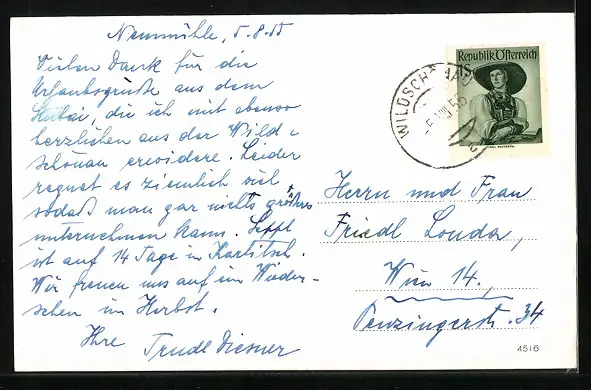 Neumühle, 5.8.55
Vielen Dank für die
Urlaubsgrüße aus dem
Stubai, die ich mit ebenso
herzlichen aus der Wild-
schönau erwidere. Leider
regnet es ziemlich viel
sodaß man gar nichts größeres
unternehmen kann. Seppl
ist auf 14 Tage in Kartitsch.
Wir freuen uns auf ein Wieder-
sehen im Herbst.
Ihre Trudl Diesner
Republik Österreich
1S
WILDSCHÖNAU
Herrn und Frau
Friedl Londa,
Wien 14.,
Penzingerstr. 34
4516